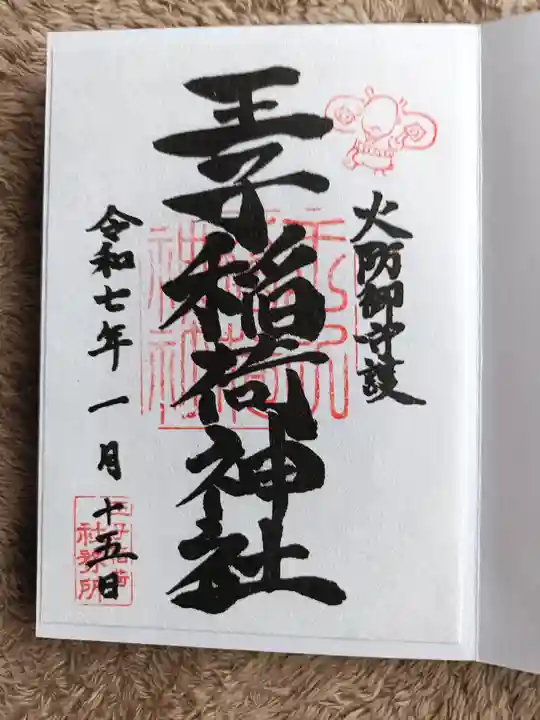 火防御守護
王子稲荷神社
令和七年一月十五日
王子稲荷
社務所